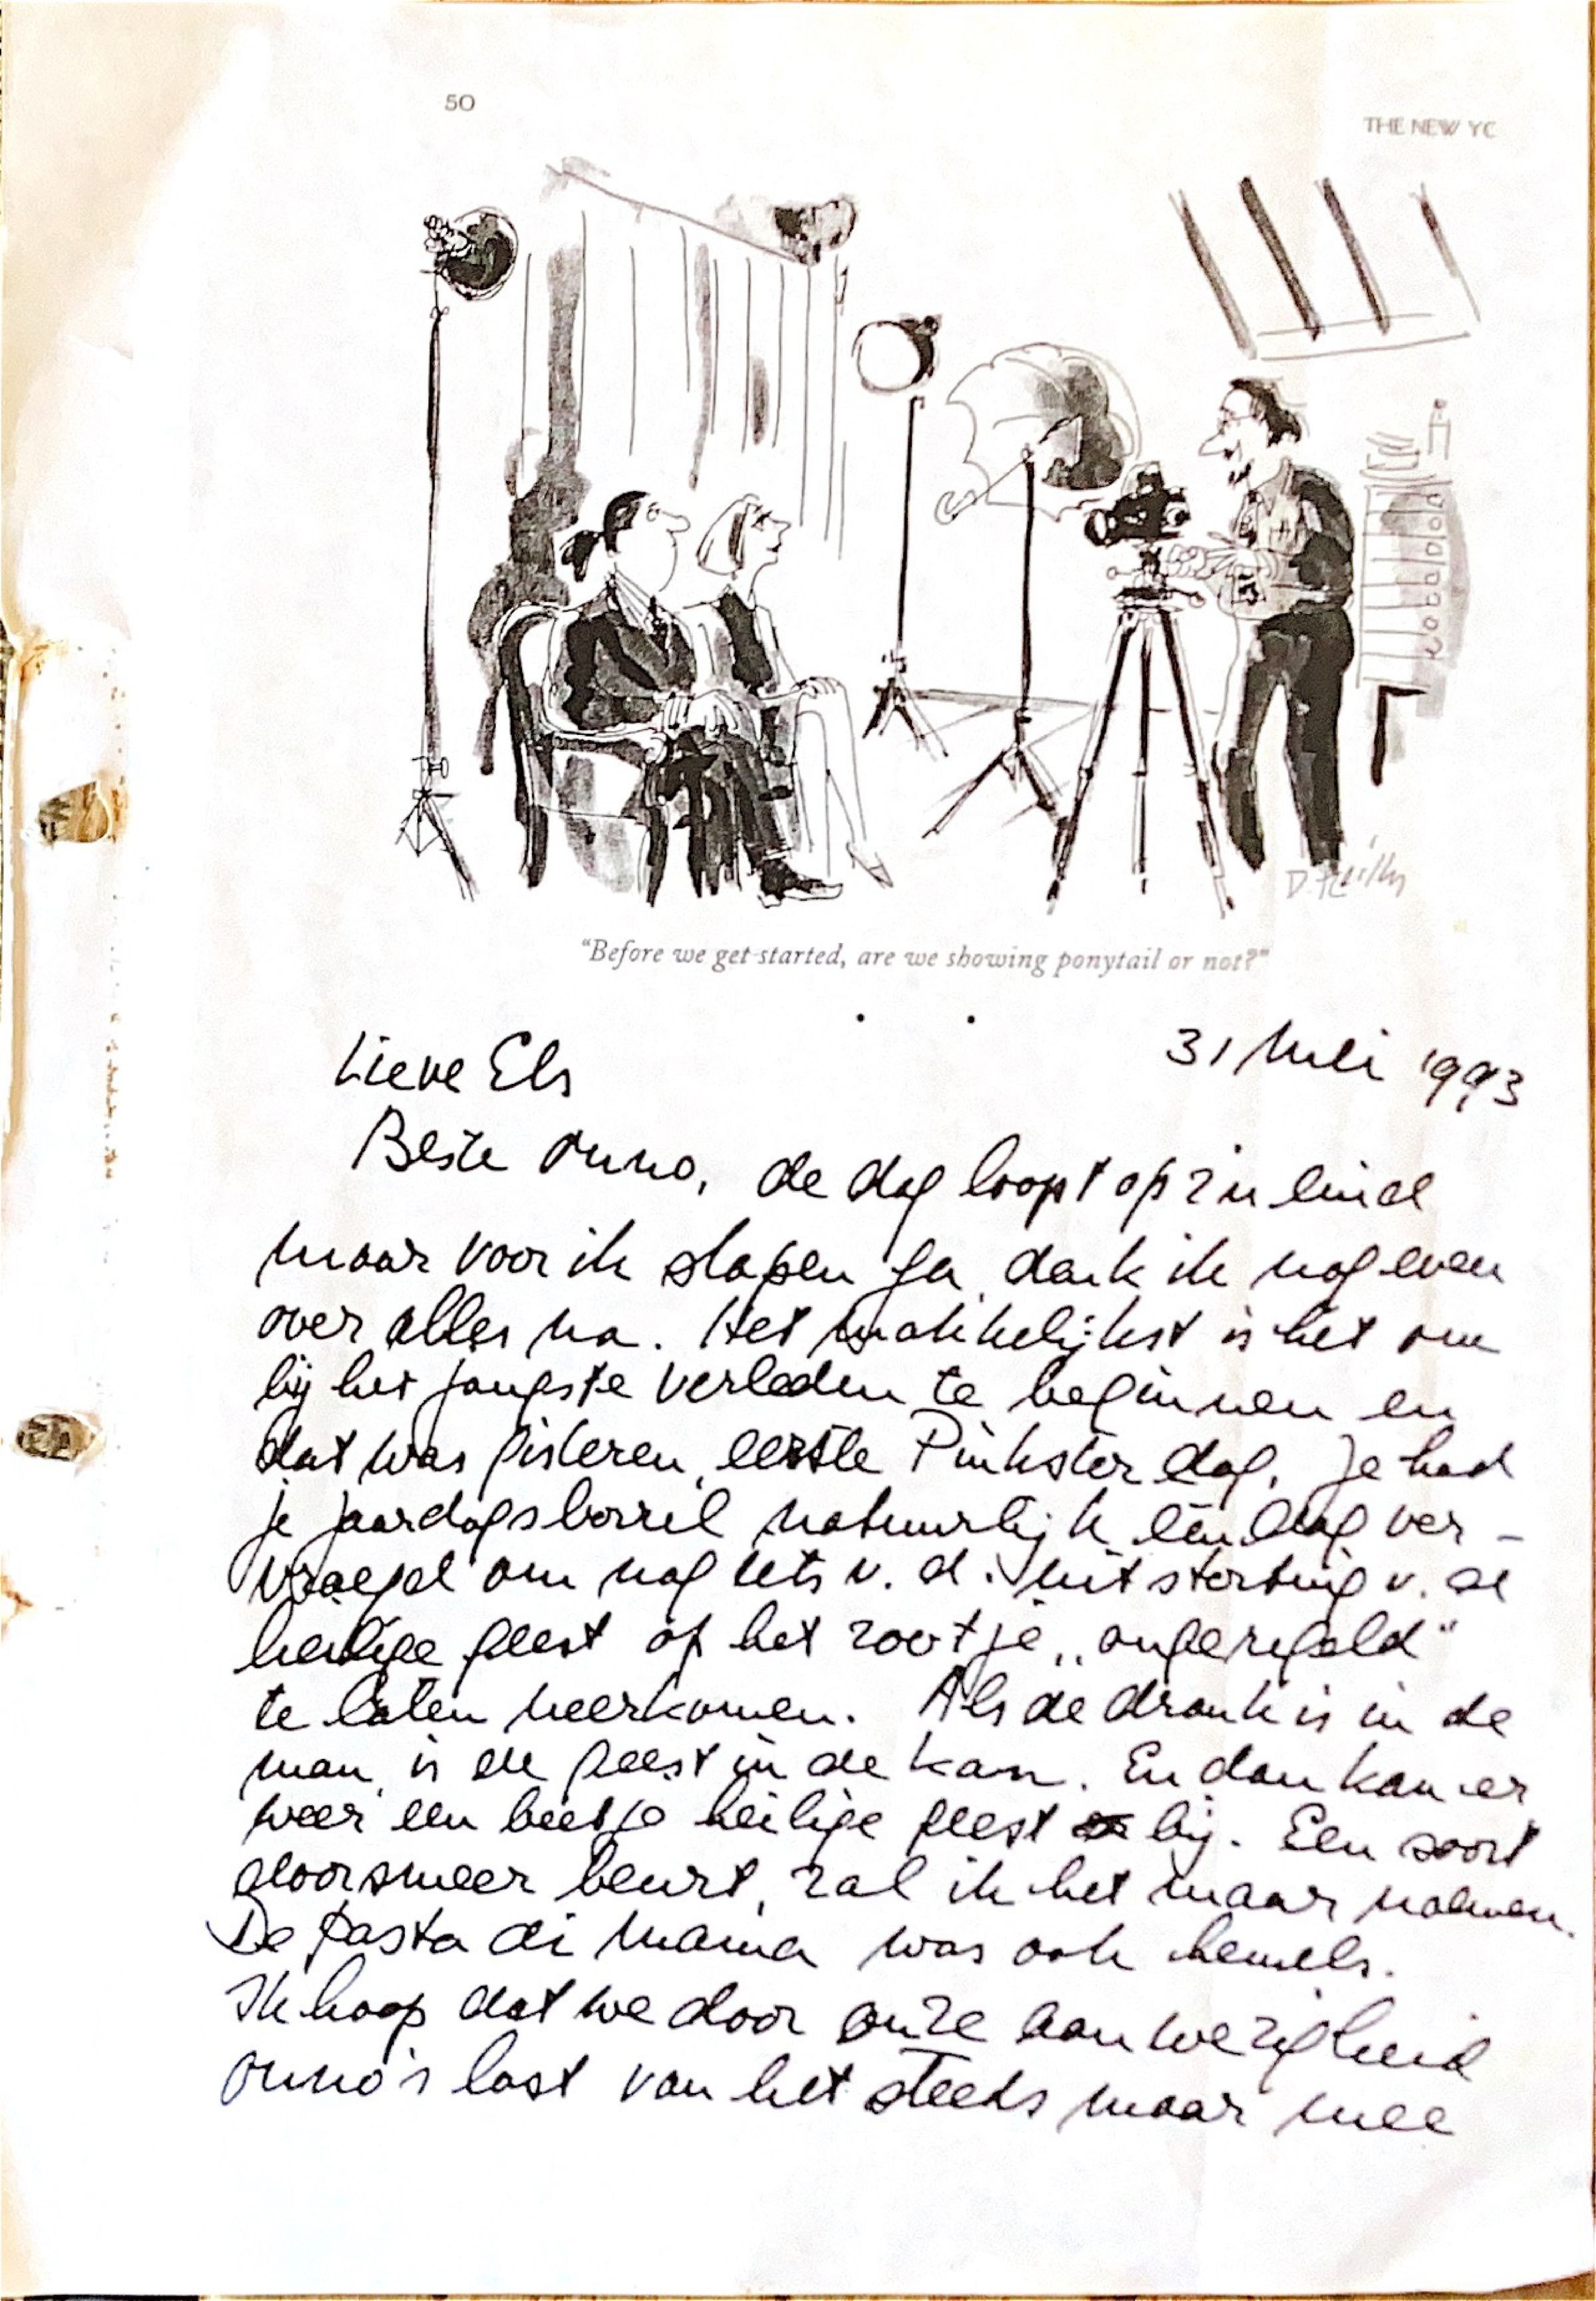 50
THE NEW YO
D. Reilly
"Before we get started, are we showing ponytail or not?"
31 Mei 1993
Lieve Els
Beste Onno, de dag loopt op z'n eind
maar voor ik slapen ga, denk ik nog even
over alles na. Het makkelijkst is het om
bij het jongste verleden te beginnen en
dat was gisteren, eerste Pinksterdag. Je had
je jaardagsborrel natuurlijk één dag ver-
vroegd om nog iets v. d. uitstorting v. de
heilige geest op het zootje „ongeregeld"
te laten neerkomen. Als de drank is in de
man, is de geest in de kan. En dan kan er
weer een beetje heilige geest bij. Een soort
doorsmeer beurt, zal ik het maar noemen.
De pasta di mama was ook hemels.
Ik hoop dat we door onze aanwezigheid
Onno's last van het steeds maar mee